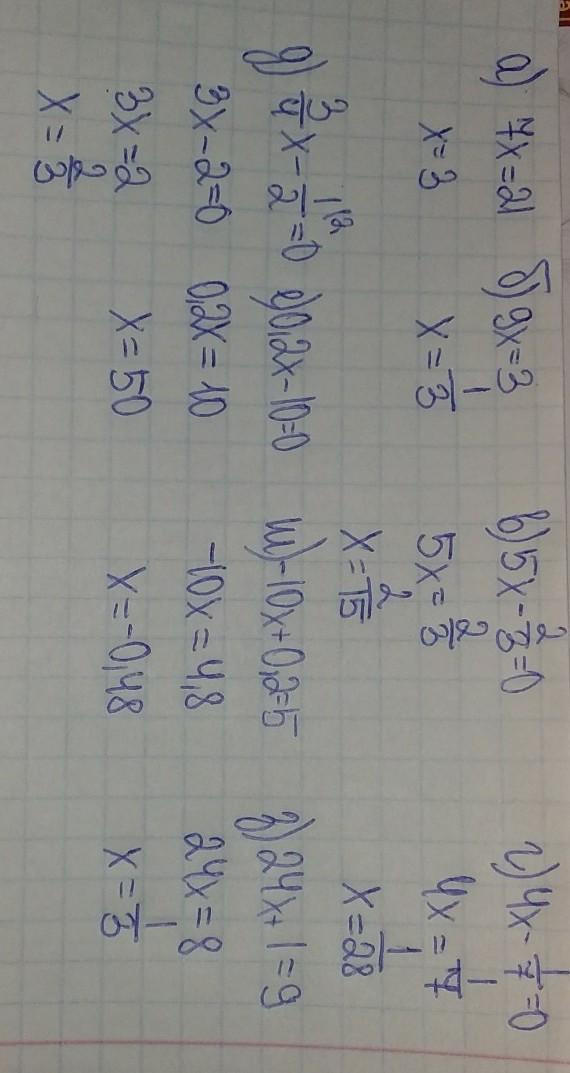 а) 7x=21
x=3
б) 9x=3
x=1/3
в) 5x-2/3=0
5x=2/3
x=2/15
г) 4x-1/7=0
4x=1/7
x=1/28
д) 3/4x-1/2=0 |2
3x-2=0
3x=2
x=2/3
е) 0,2x-10=0
0,2x=10
x=50
ш) -10x+0,2=5
-10x=4,8
x=-0,48
з) 24x+1=9
24x=8
x=1/3